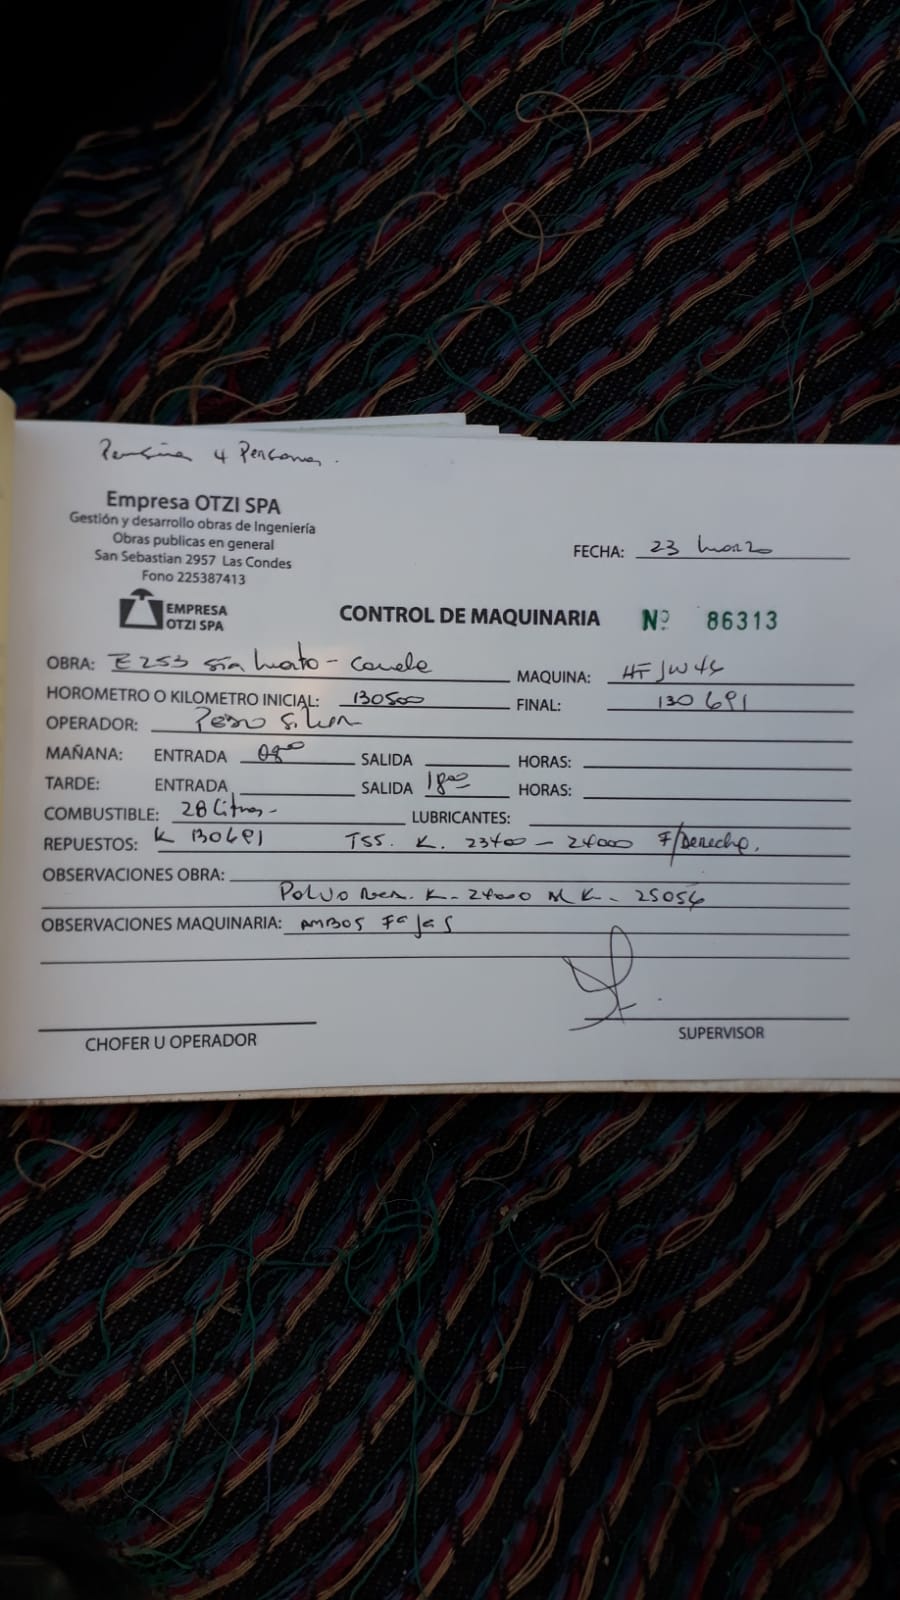 4 Personas.
Empresa OTZI SPA
Gestión y desarrollo obras de Ingeniería
Obras publicas en general
San Sebastian 2957 Las Condes
Fono 225387413
FECHA: 23 marzo
EMPRESA
OTZI SPA
CONTROL DE MAQUINARIA Nº 86313
OBRA: E253 - Canela
MAQUINA: HFJW44
HOROMETRO O KILOMETRO INICIAL: 130500
FINAL: 130691
OPERADOR: Pedro Silva
MAÑANA: ENTRADA 08⁰⁰ SALIDA HORAS:
TARDE: ENTRADA SALIDA 18⁰⁰ HORAS:
COMBUSTIBLE: 28 Litros - LUBRICANTES:
REPUESTOS: K 130691 TSS. K. 23400 - 24000 F/Derecha.
OBSERVACIONES OBRA:
Polvo K. 24000 K. 25054
OBSERVACIONES MAQUINARIA: AMBOS Fajas
CHOFER U OPERADOR
SUPERVISOR